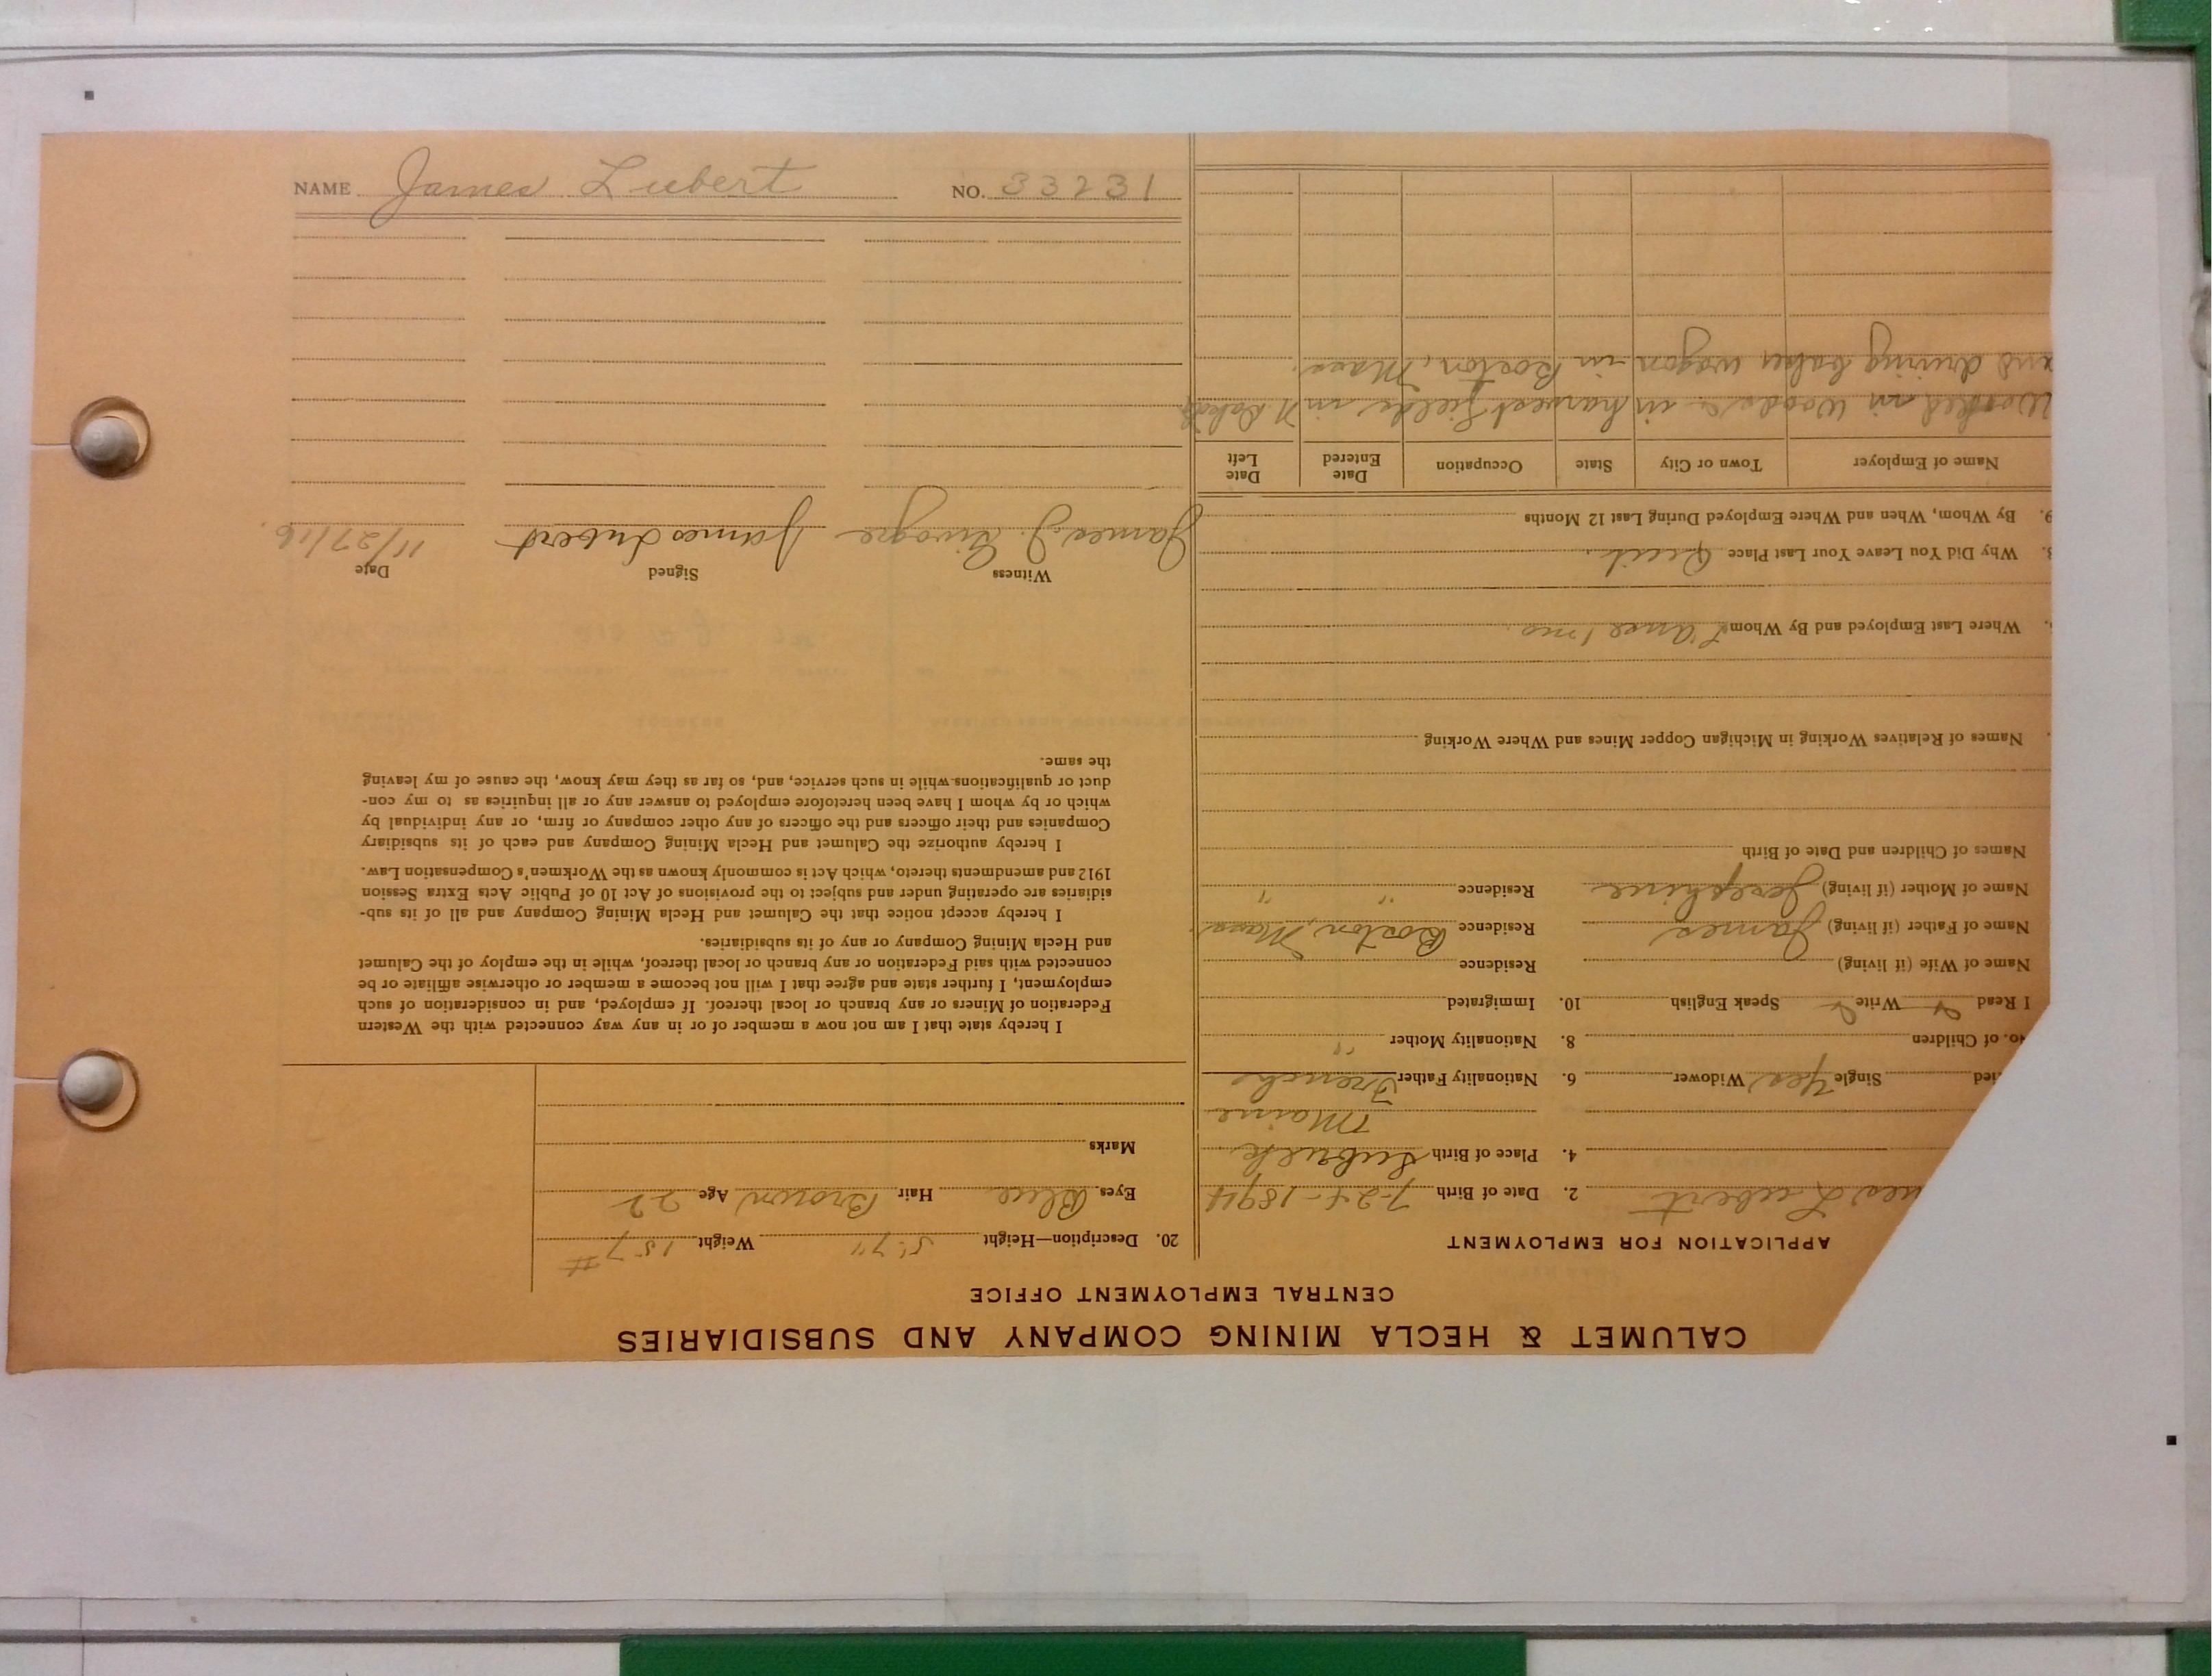 NAME James Lubert NO. 33231
CALUMET & HECLA MINING COMPANY AND SUBSIDIARIES
CENTRAL EMPLOYMENT OFFICE
APPLICATION FOR EMPLOYMENT
mes Lubert 2. Date of Birth 7-24-1894
4. Place of Birth Lubeck
Maine
ied Single Yes Widower 6. Nationality Father French
No. of Children 8. Nationality Mother " "
I Read Write Speak English 10. Immigrated
Name of Wife (if living) Residence
Name of Father (if living) James Residence Boston, Mass.
Name of Mother (if living) Josephine Residence " "
Names of Children and Date of Birth
Names of Relatives Working in Michigan Copper Mines and Where Working
Where Last Employed and By Whom L'Anse 1 mo.
Why Did You Leave Your Last Place Quit.
9. By Whom, When and Where Employed During Last 12 Months
Name of Employer Town or City State Occupation Date Entered Date Left
Worked in woods & in harvest fields in N Dakota
and driving baker wagon in Boston, Mass.
20. Description—Height 5' 7" Weight 157#
Eyes Blue Hair Brown Age 22
Marks
I hereby state that I am not now a member of or in any way connected with the Western
Federation of Miners or any branch or local thereof. If employed, and in consideration of such
employment, I further state and agree that I will not become a member or otherwise affiliate or be
connected with said Federation or any branch or local thereof, while in the employ of the Calumet
and Hecla Mining Company or any of its subsidiaries.
I hereby accept notice that the Calumet and Hecla Mining Company and all of its sub-
sidiaries are operating under and subject to the provisions of Act 10 of Public Acts Extra Session
1912 and amendments thereto, which Act is commonly known as the Workmen's Compensation Law.
I hereby authorize the Calumet and Hecla Mining Company and each of its subsidiary
Companies and their officers and the officers of any other company or firm, or any individual by
which or by whom I have been heretofore employed to answer any or all inquiries as to my con-
duct or qualifications while in such service, and, so far as they may know, the cause of my leaving
the same.
Witness Signed Date
James J. James Lubert 11/27/16